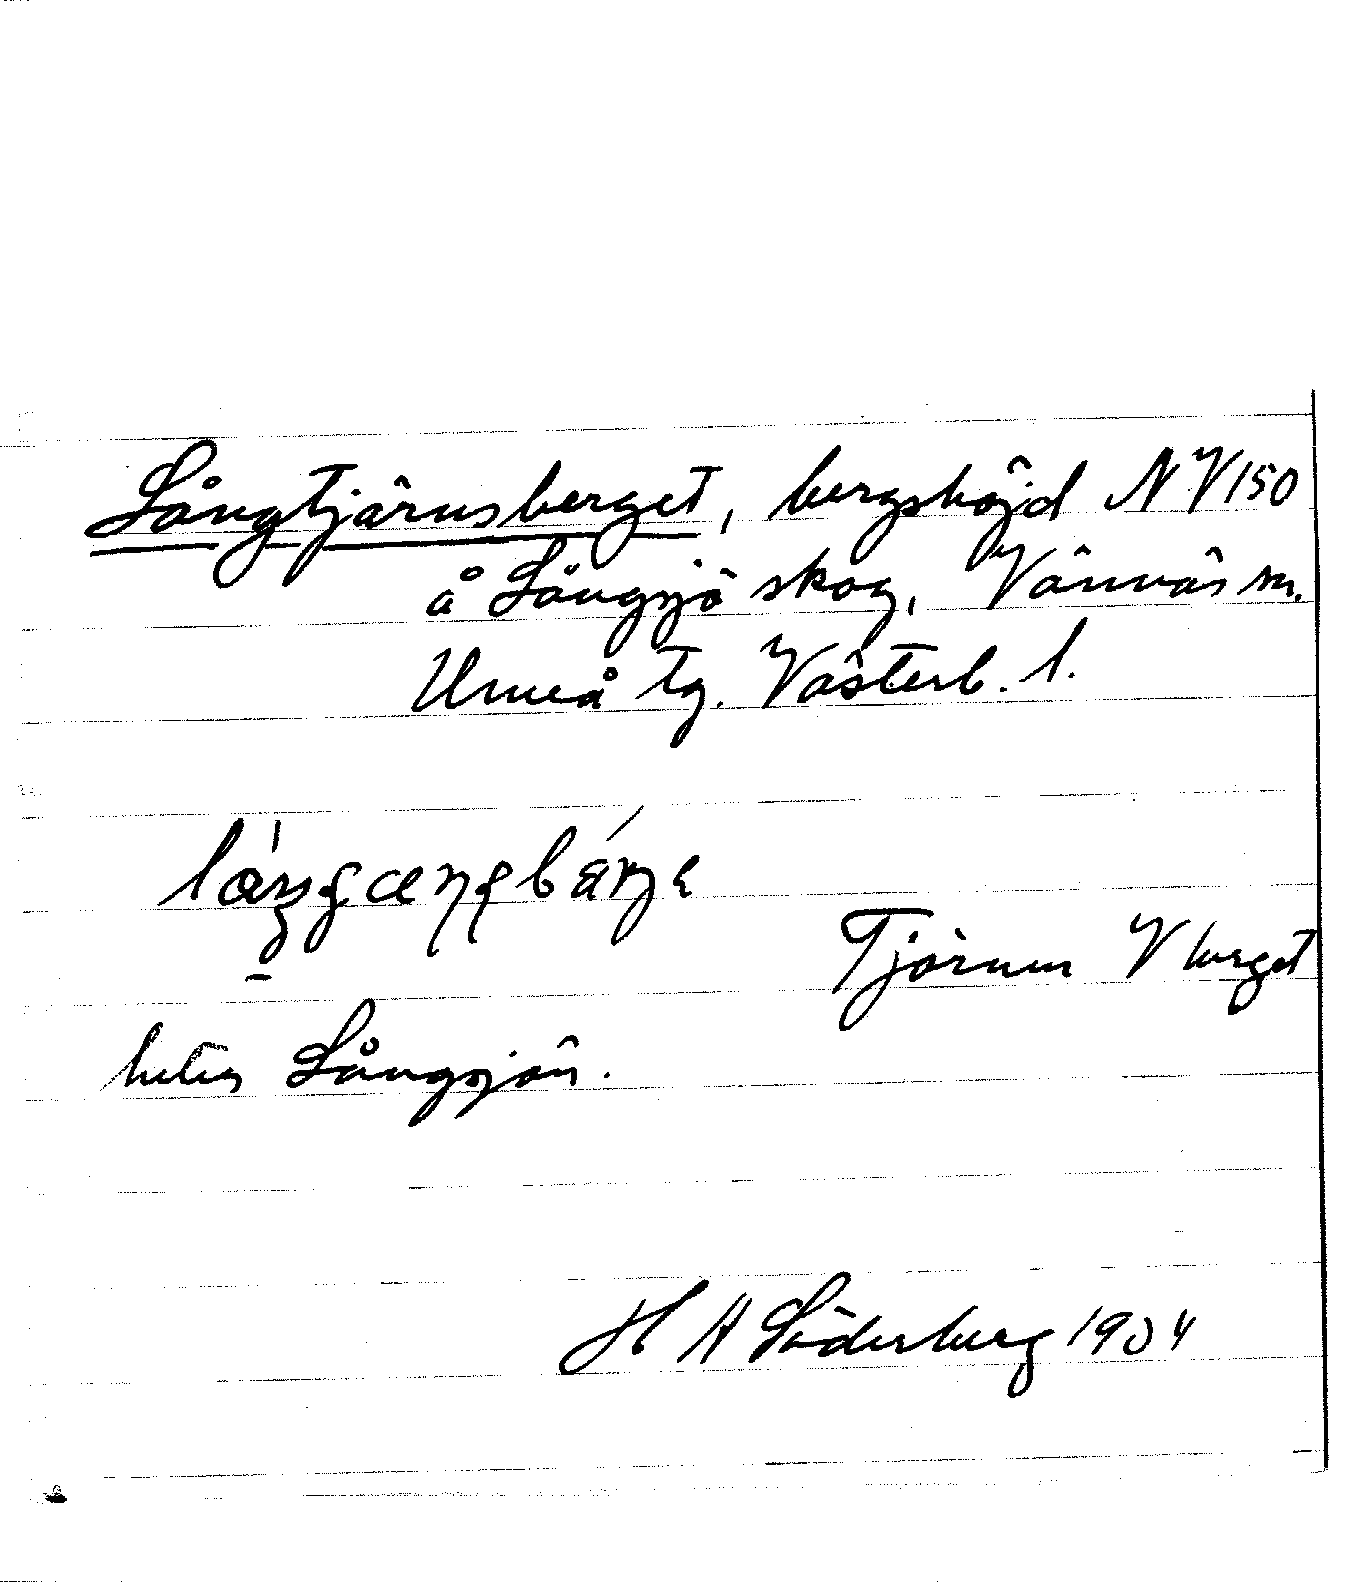 Långtjärnsberget, bergshöjd NV150
å Långsjö skog, Vännäs sn.
Umeå tg. Västerb. l.
Tjärnen V berget
heter Långsjön.
H A Söderberg 1904